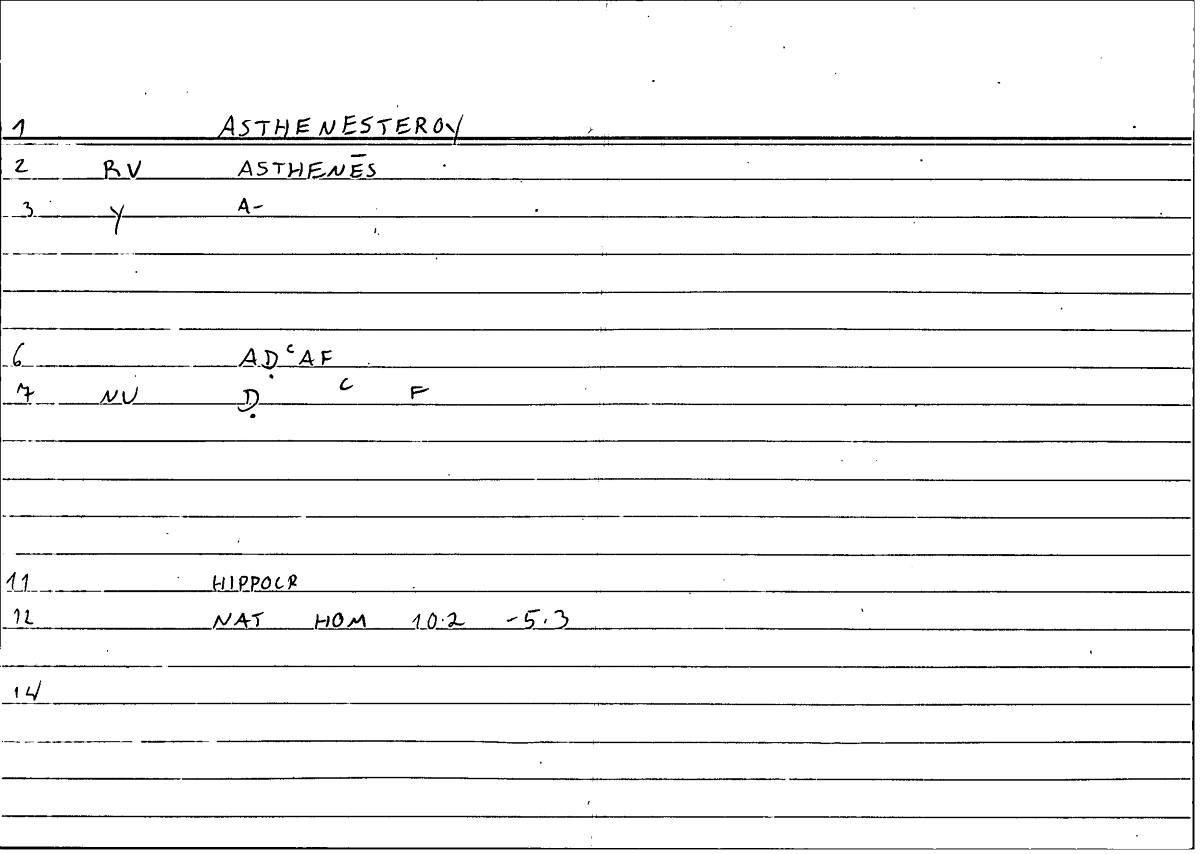 1 ASTHENESTEROY
2 RV ASTHENĒS
3 Y A-
6 AḌᶜAF
7 NU Ḍ ᶜ F
11 HIPPOCR
12 NAT HOM 10.2 -5.3
14